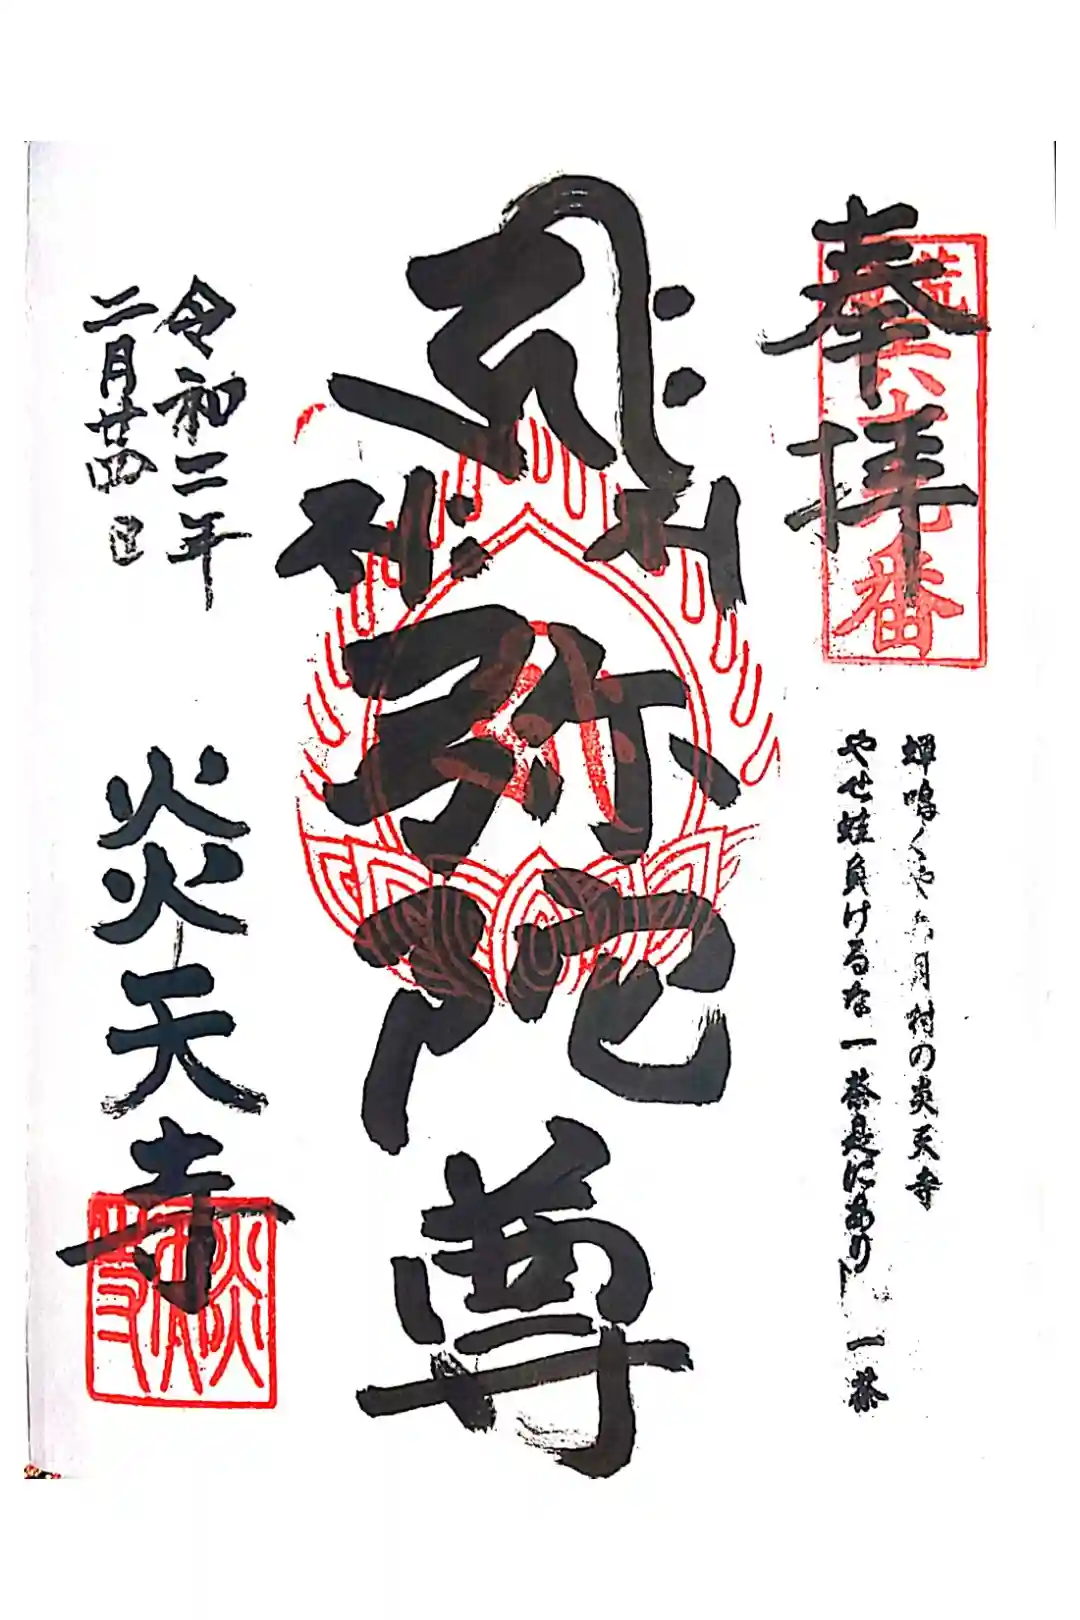 奉拝
番
蝉鳴くや六月村の炎天寺
やせ蛙負けるな一茶是にあり 一茶
弥陀尊
令和二年
二月廿四日
炎天寺
炎天寺